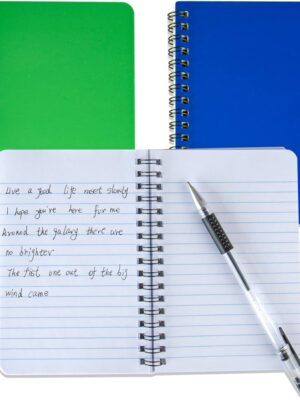 Live a good life meet slowly
I hope you're here for me
Around the galaxy there are
no brighter
The fist one out of the big
wind came